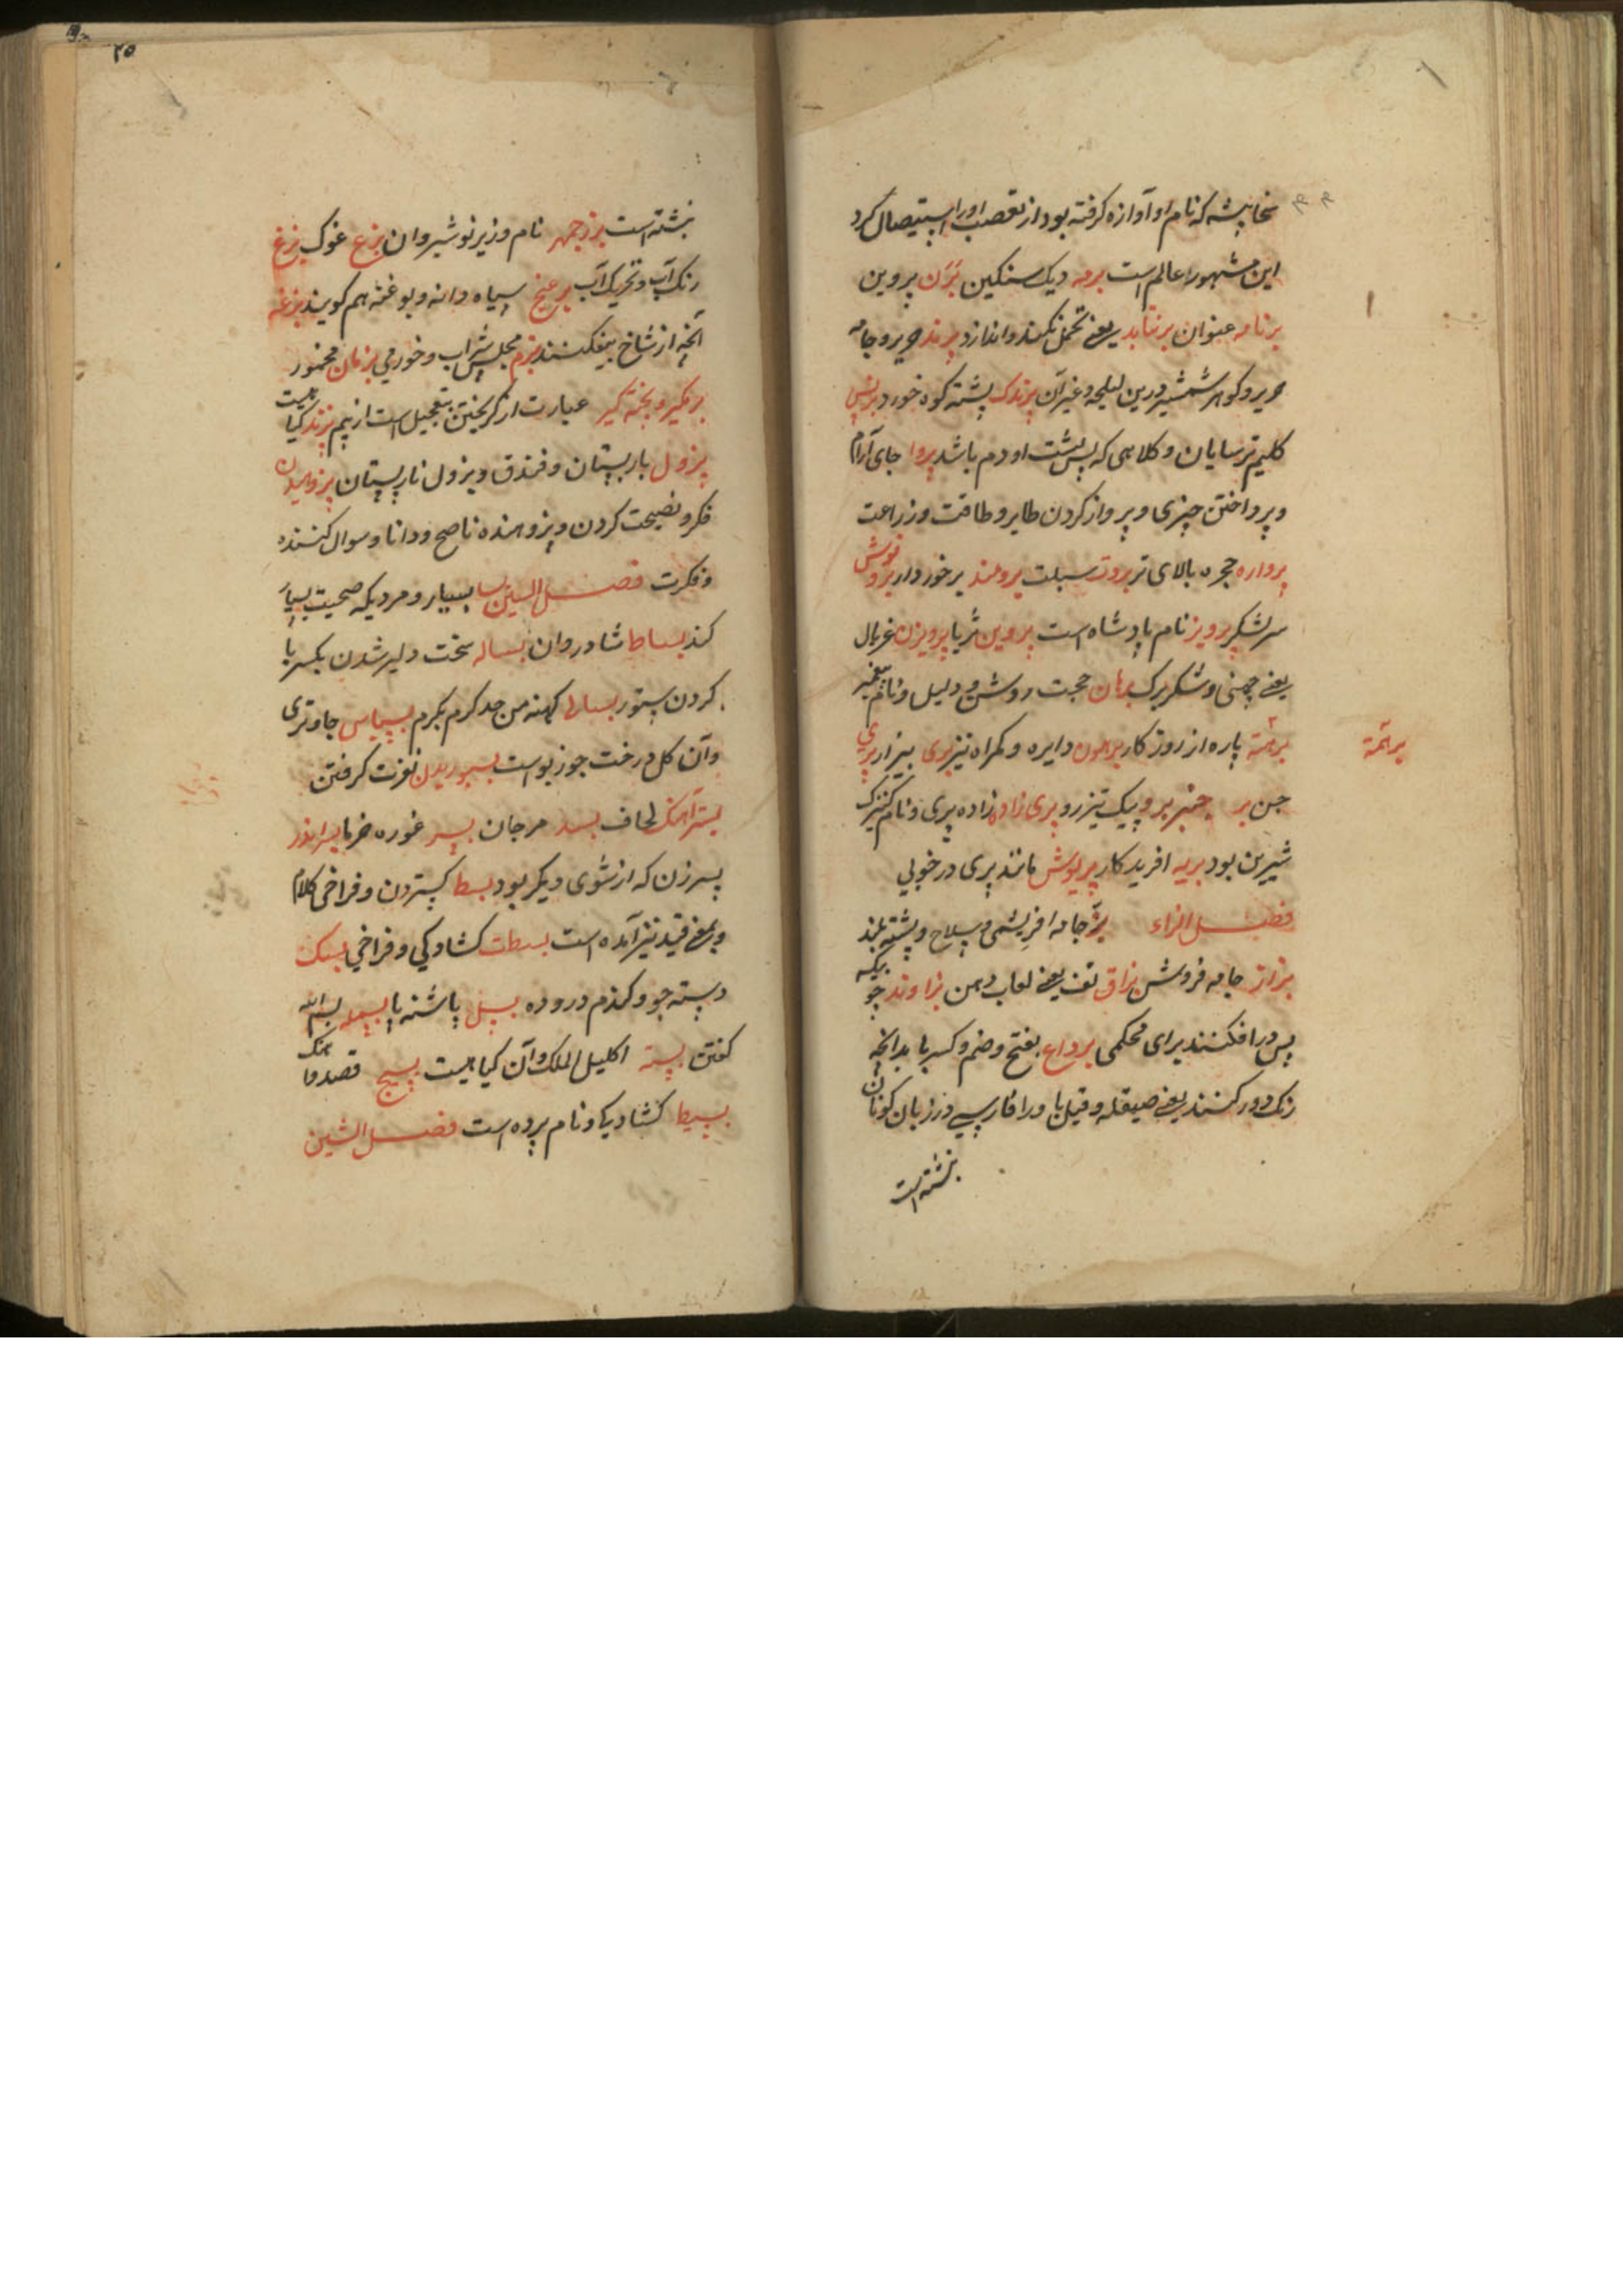 سخا پیشه که نام او آوازه گرفته بود از تعصب او را استیصال کرد
این مشهور عالم است برمه دیک سنکین پرن پروین
برنامه عنوان برنتابد یعنی تحمل نکند و اندازد پرند حریر و جامه
حریر و کوهر شمشیر و غیر آن پرندک پشته کوه خورد برنس
کلیم ترسایان و کلاهی که پس پشت او دم باشد پروا جای آرام
و پرداختن چیزی و پرواز کردن طایر و طاقت و زراعت
پرواره حجره بالای تر بروت سبلت برومند برخوردار بروفوش
سر لشکر پرویز نام پادشاه است پروین ثریا پرویزن غربال
یعنی چهنی و شکر برک برهان حجت روشن و دلیل و نام پیغمبر
برهة پاره از روزکار برهون دایره و کمراه نیز بری بیزار پری
جن بر و پیک تیزرو پری زاد زاده پری و نام کنیزک
شیرین بود بریه افریدکار پریوش مانند پری در خوبی
فصل الزاء بز جامه افریشمی و سلاح و پشته بلند
بزاز جامه فروش بزاق تف یعنی لعاب دهن بزاوند چوبیکه
پس در افکنند برای محکمی بزداغ بفتح و ضم و کسر با بدانچه
زنک دور کنند یعنی صیقله و قیل با و را فارسی در زبان کویان
نبشته است
برهمة
۲۵
نبشته است بزرجمهر نام وزیر نوشیروان بزغ غوک بزغ
رنک آب و تحریک آب برغنج سیاه دانه و بوغنه هم کویند بزغه
آنچه از شاخ بیفکنند بزم مجلس شراب و خورمی بزمان مخمور
بزنکیر و بخته کیر عبارت از کریختن بتعجیل است از بیم بزند کیاهیست
پزول باربستان و فندق و بزول نارپستان پزوهیدن
فکر و نصیحت کردن و پزوهنده ناصح و دانا و سوال کننده
و فکرت فصل السین بسا بسیار و مردیکه صحبت بسیار
کند بساط شادروان بساله سخت دلیر شدن بکسر با
کردن ستور بسالی کهنه من جد کرم بکرم بسپاس جاوتری
و آن کل درخت جوز بواست بسوریدن نفرت کرفتن
بسترآهنک لحاف بسد مرجان بسر غوره خرما پسراندر
پسر زن که از شوی دیکر بود بسط کستردن و فراخی کلام
و بمعنی قید نیز آمده است بسطت کشادکی و فراخی بسک
دسته جو و کندم دروده بسل پاشنه پا بسمله بسم الله
کفتن بسته اکلیل الملک و آن کیاهیست بسیج قصد و آهنک
بسیط کشادیکی و نام پرده است فصل الشین